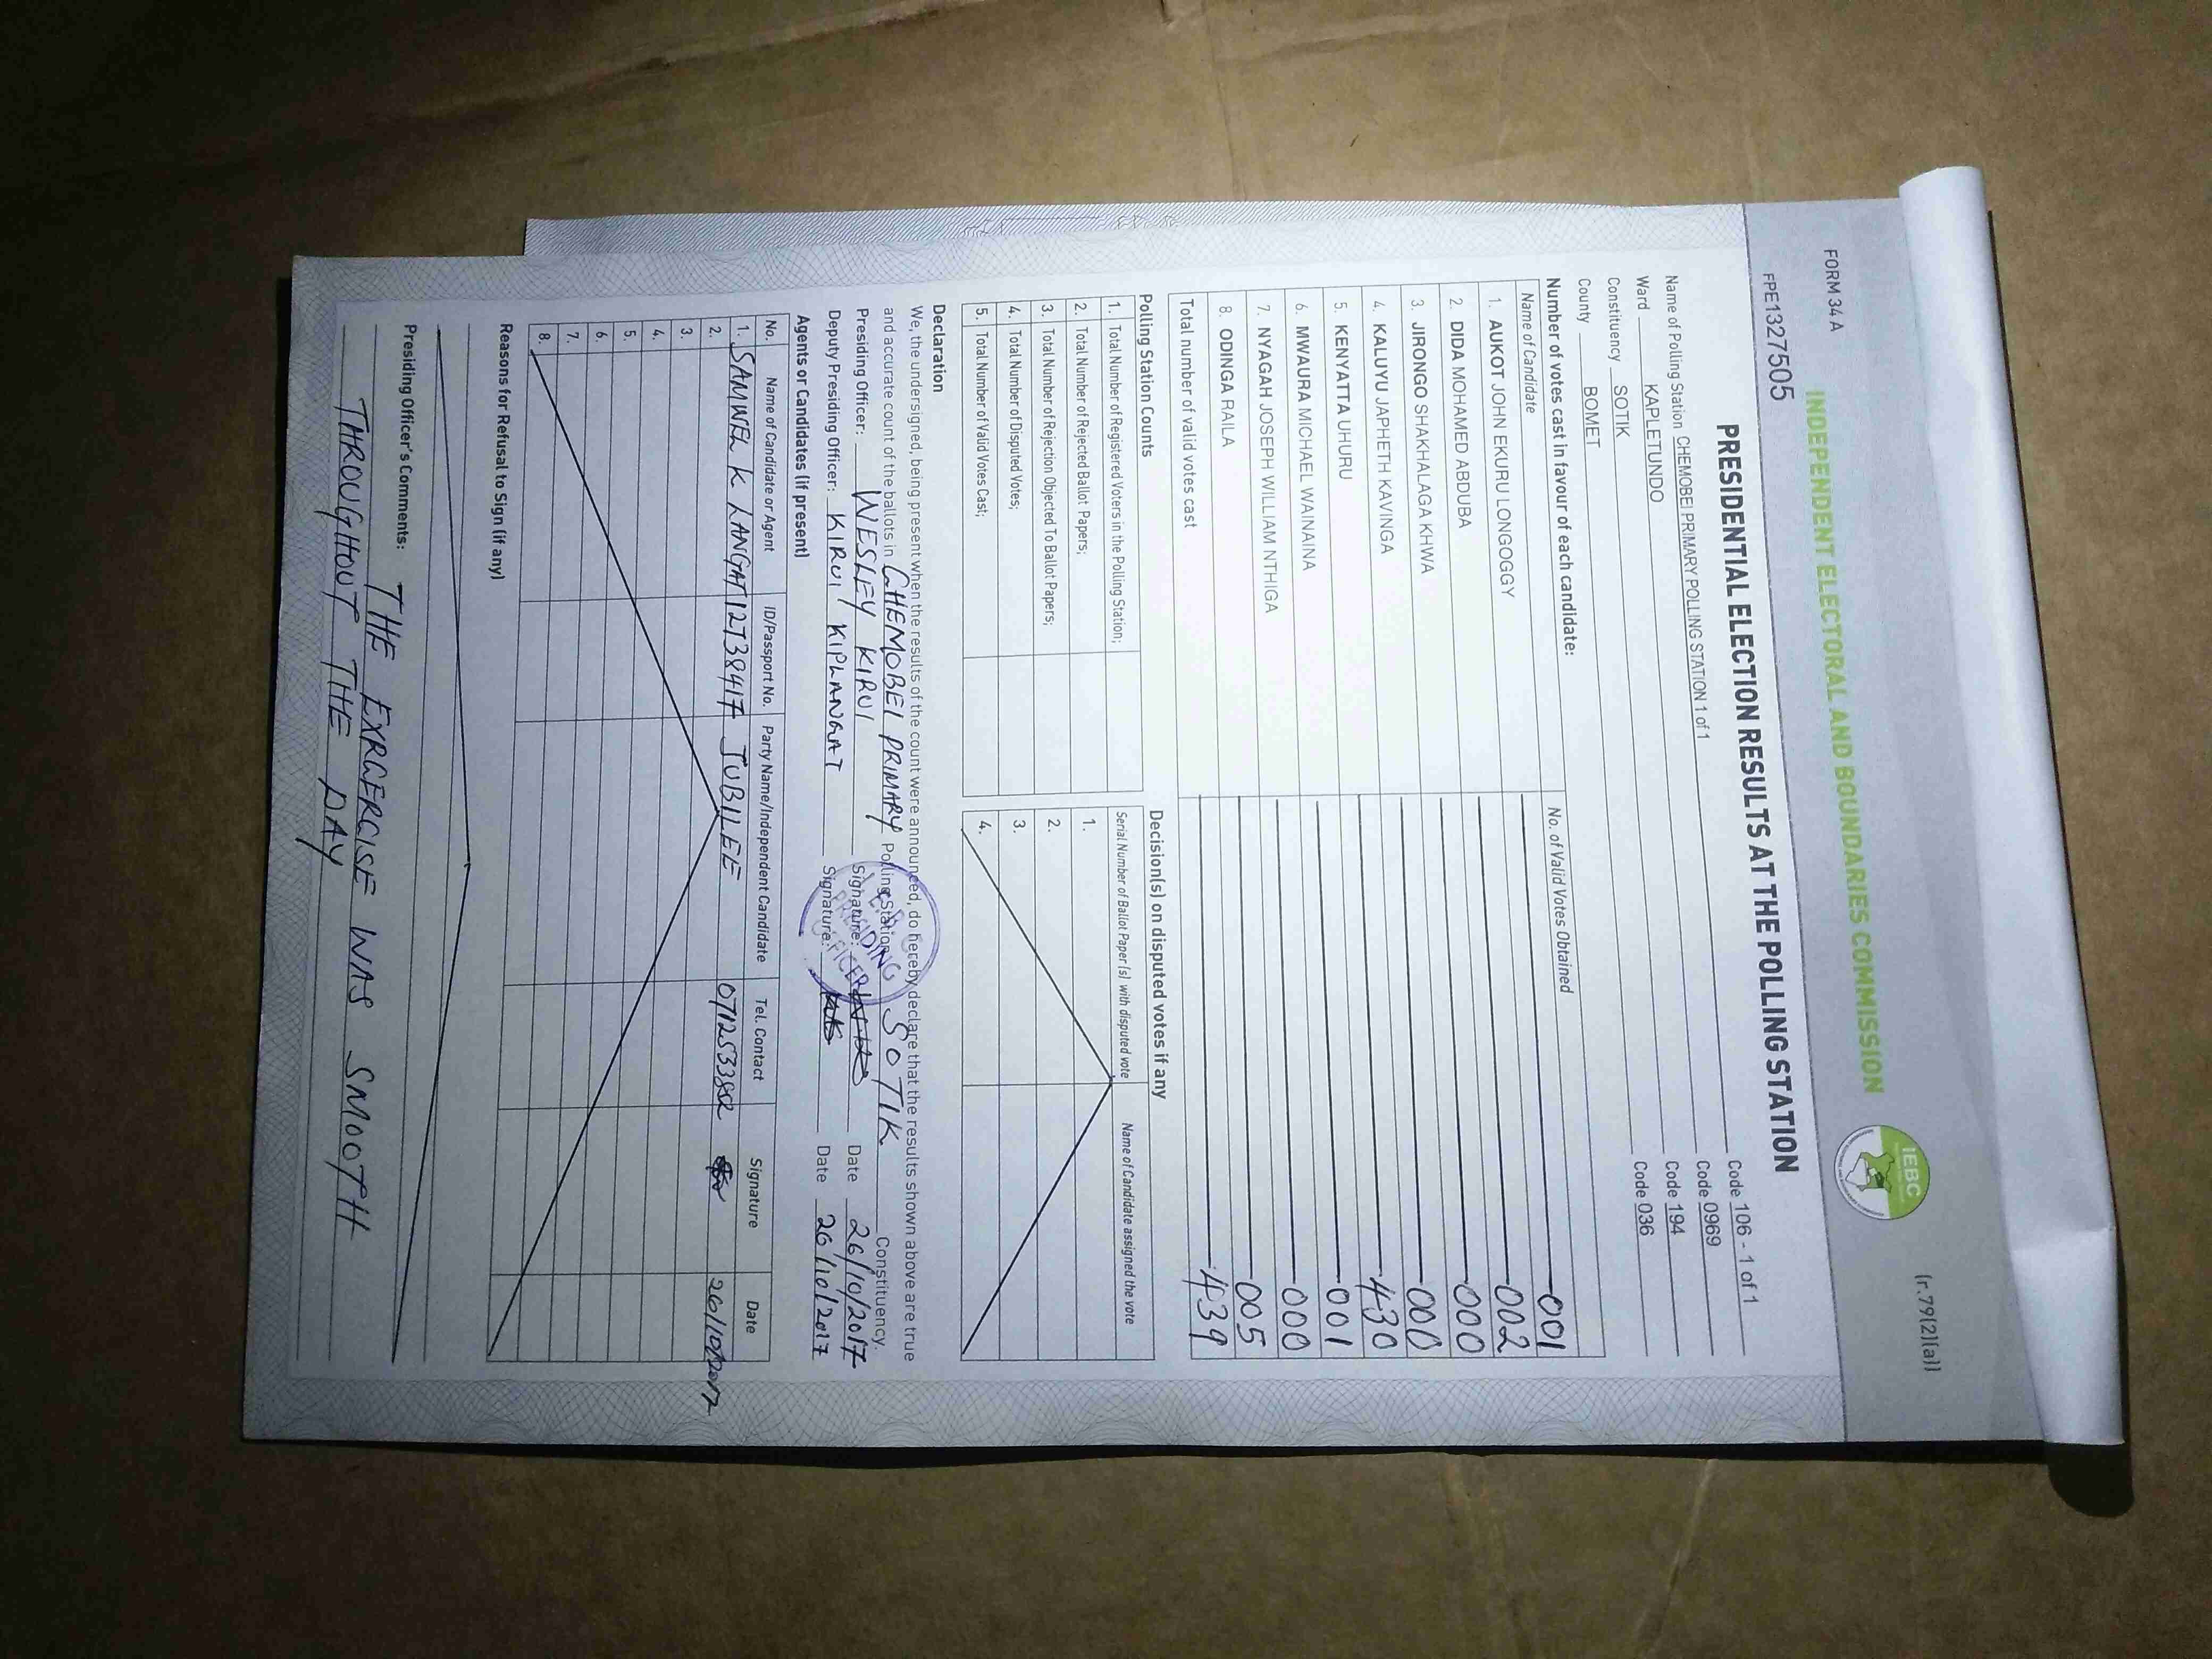 (r.79(2)(a))
FORM 34 A
INDEPENDENT ELECTORAL AND BOUNDARIES COMMISSION
IEBC
FPE1327505
PRESIDENTIAL ELECTION RESULTS AT THE POLLING STATION
Name of Polling Station CHEMOBEI PRIMARY POLLING STATION 1 of 1 Code 106 - 1 of 1
Ward KAPLETUNDO Code 0969
Constituency SOTIK Code 194
County BOMET Code 036
Number of votes cast in favour of each candidate:
Name of Candidate No. of Valid Votes Obtained
1. AUKOT JOHN EKURU LONGOGGY 001
2. DIDA MOHAMED ABDUBA 002
3. JIRONGO SHAKHALAGA KHWA 000
4. KALUYU JAPHETH KAVINGA 000
5. KENYATTA UHURU 430
6. MWAURA MICHAEL WAINAINA 001
7. NYAGAH JOSEPH WILLIAM NTHIGA 000
8. ODINGA RAILA 005
Total number of valid votes cast 439
Polling Station Counts
1. Total Number of Registered Voters in the Polling Station;
2. Total Number of Rejected Ballot Papers;
3. Total Number of Rejection Objected To Ballot Papers;
4. Total Number of Disputed Votes;
5. Total Number of Valid Votes Cast;
Decision(s) on disputed votes if any
Serial Number of Ballot Paper (s) with disputed vote Name of Candidate assigned the vote
1.
2.
3.
4.
Declaration
We, the undersigned, being present when the results of the count were announced, do hereby declare that the results shown above are true
and accurate count of the ballots in CHEMOBEI PRIMARY Polling Station SOTIK Constituency.
Presiding Officer: WESLEY KIRUI Signature: Date 26/10/2017
Deputy Presiding Officer: KIRUI KIPLANGAT Signature: Date 26/10/2017
PRESIDING
OFFICER
Agents or Candidates (if present)
No. Name of Candidate or Agent ID/Passport No. Party Name/Independent Candidate Tel. Contact Signature Date
1. SAMWEL K LANGAT 12738417 JUBILEE 0712533802 26/10/2017
2.
3.
4.
5.
6.
7.
8.
Reasons for Refusal to Sign (if any)
Presiding Officer's Comments: THE EXRCERCISE WAS SMOOTH
THROUGHOUT THE DAY